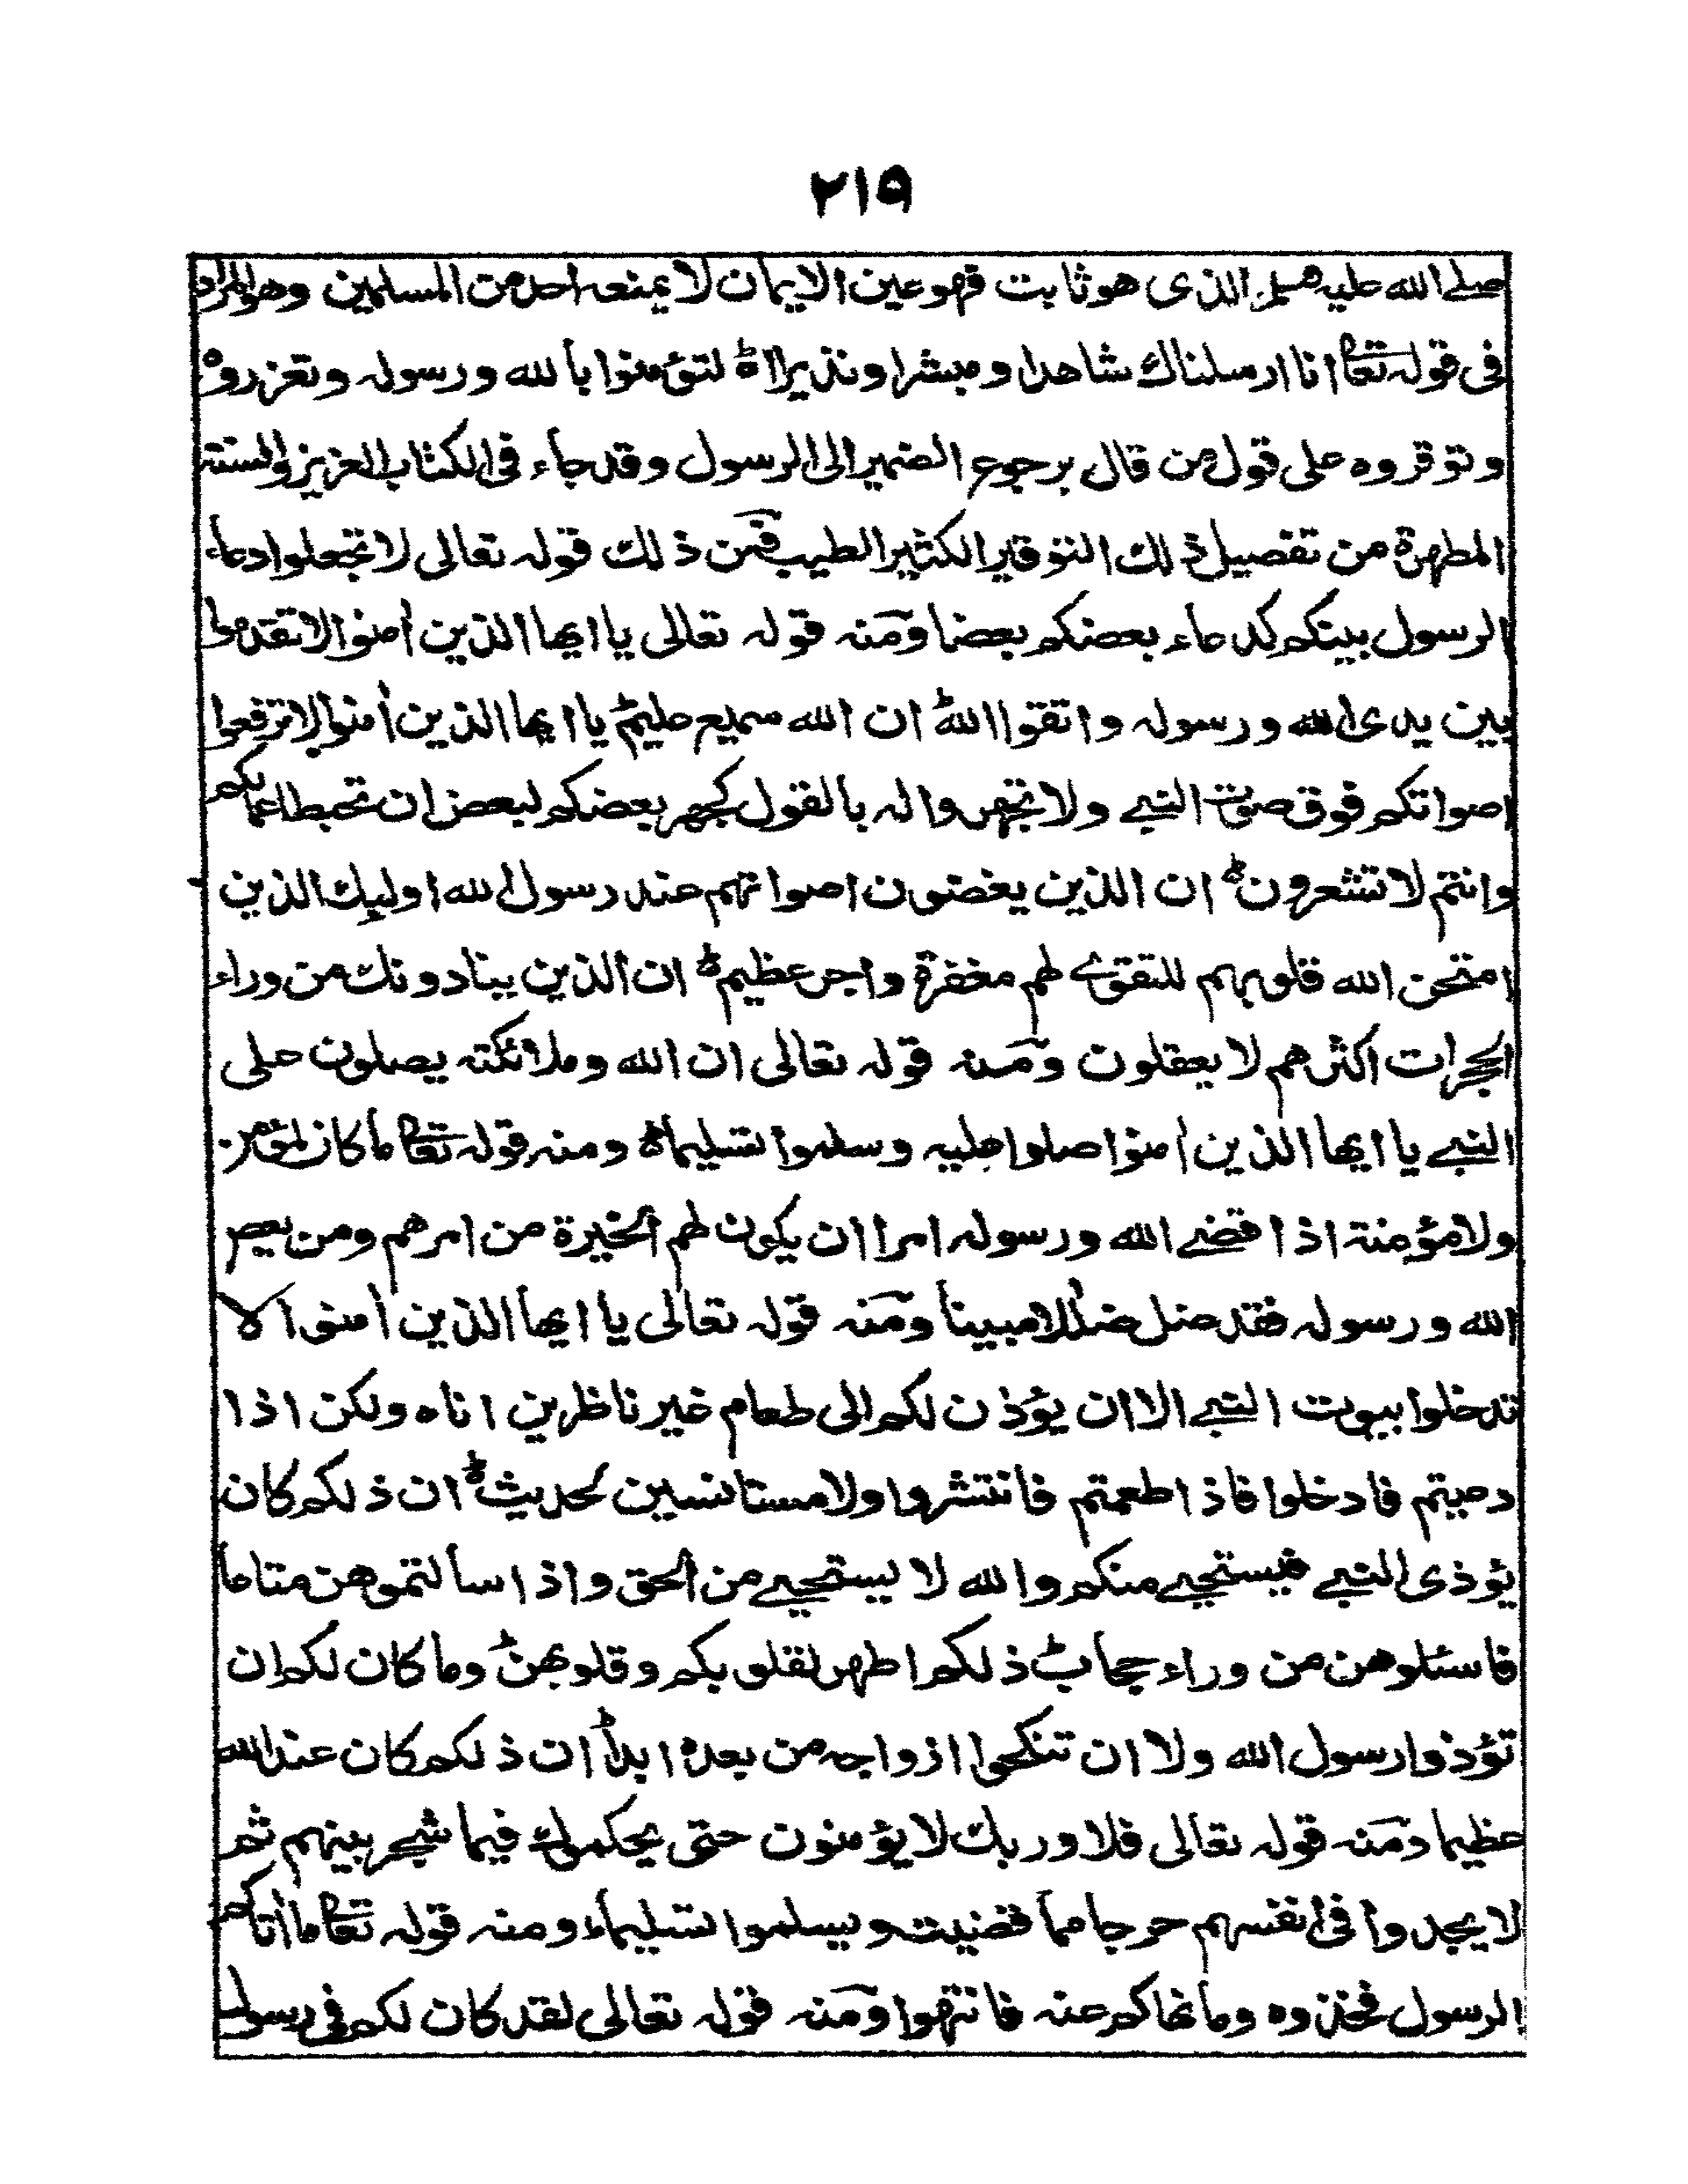 ٢١٩
صلے الله عليه وسلم الذى هو ثابت فهو عين الايمان لا يمنعه احد من المسلمين وهو المراد
فى قوله تعا انا ارسلناك شاهدا ومبشرا ونذيرا لتؤمنوا بالله ورسوله وتعزروه
وتوقروه على قول من قال برجوع الضمير الى الرسول وقد جاء فى الكتاب العزيز والسنة
المطهرة من تفصيل ذلك التوقير الكثير الطيب فمن ذلك قوله تعالى لا تجعلوا دعاء
الرسول بينكم كدعاء بعضكم بعضا ومنه قوله تعالى يا ايها الذين اٰمنوا لا تقدموا
بين يدى الله ورسوله واتقوا الله ان الله سميع عليم يا ايها الذين اٰمنوا لا ترفعوا
اصواتكم فوق صوت النبے ولا تجهروا له بالقول كجهر بعضكم لبعض ان تحبط اعمالكم
وانتم لا تشعرون ان الذين يغضون اصواتهم عند رسول الله اوليك الذين
امتحن الله قلوبهم للتقوے لهم مغفرة واجر عظيم ان الذين ينادونك من وراء
الحجرات اكثرهم لا يعقلون ومنه قوله تعالى ان الله وملائكته يصلون على
النبے يا ايها الذين اٰمنوا صلوا عليه وسلموا تسليما ومنه قوله تعا ما كان لمؤمن
ولا مؤمنة اذا قضے الله ورسوله امرا ان يكون لهم الخيرة من امرهم ومن يعص
الله ورسوله فقد ضل ضلٰلا مبينا ومنه قوله تعالى يا ايها الذين اٰمنوا لا
تدخلوا بيوت النبے الا ان يؤذن لكم الى طعام غير ناظرين اناه ولكن اذا
دعيتم فادخلوا فاذا طعمتم فانتشروا ولا مستانسين لحديث ان ذلكم كان
يؤذى النبے فيستحيے منكم والله لا يستحيے من الحق واذا سألتموهن متاعا
فاسئلوهن من وراء حجاب ذلكم اطهر لقلوبكم وقلوبهن وما كان لكم ان
تؤذوا رسول الله ولا ان تنكحوا ازواجه من بعده ابدا ان ذلكم كان عند الله
عظيما ومنه قوله تعالى فلا وربك لا يؤمنون حتى يحكموك فيما شجر بينهم ثم
لا يجدوا فى انفسهم حرجا مما قضيت ويسلموا تسليماء ومنه قوله تعا ما اٰتاكم
الرسول فخذوه وما نهاكم عنه فانتهوا ومنه قوله تعالى لقد كان لكم فى رسول